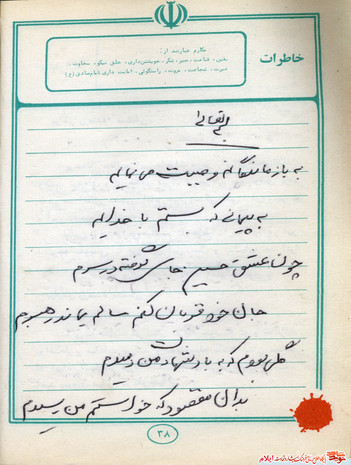 خاطرات
مکارم عبارتند از:
یقین، قناعت، صبر، شکر، خویشتن‌داری، خلق نیکو، سخاوت،
غیرت، شجاعت، مروت، راستگوئی، امانت داری (امام صادق (ع))
بسمه تعالی
به بازماندگانم وصیت می نمایم
به پیمانی که بستم با خدایم
چون عشق حسین جای گرفته در سرم
جان خود قربان کنم سالم بماند رهبرم
گلی بودم که به باد شهادت من دمیدم
بدان مقصود که خواستم من رسیدم
۳۸